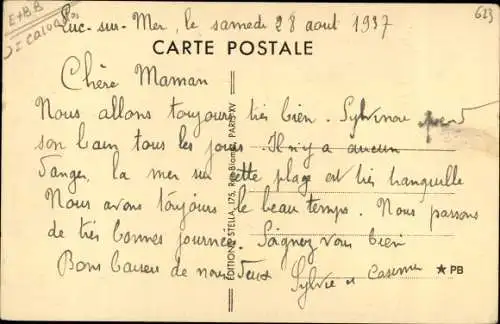 E+BB
Calvados
623
Luc-sur-Mer, le samedi 28 août 1937
CARTE POSTALE
Chère Maman
Nous allons toujours très bien. Sylvinou prend
son bain tous les jours. Il n'y a aucun
danger, la mer sur cette plage est très tranquille
Nous avons toujours le beau temps. Nous passons
de très bonnes journées. Soignez vous bien
Bons baisers de nous deux
Sylvie et Casimir
★ PB
ÉDITIONS STELLA, 175, Rue Blomet, PARIS-XV